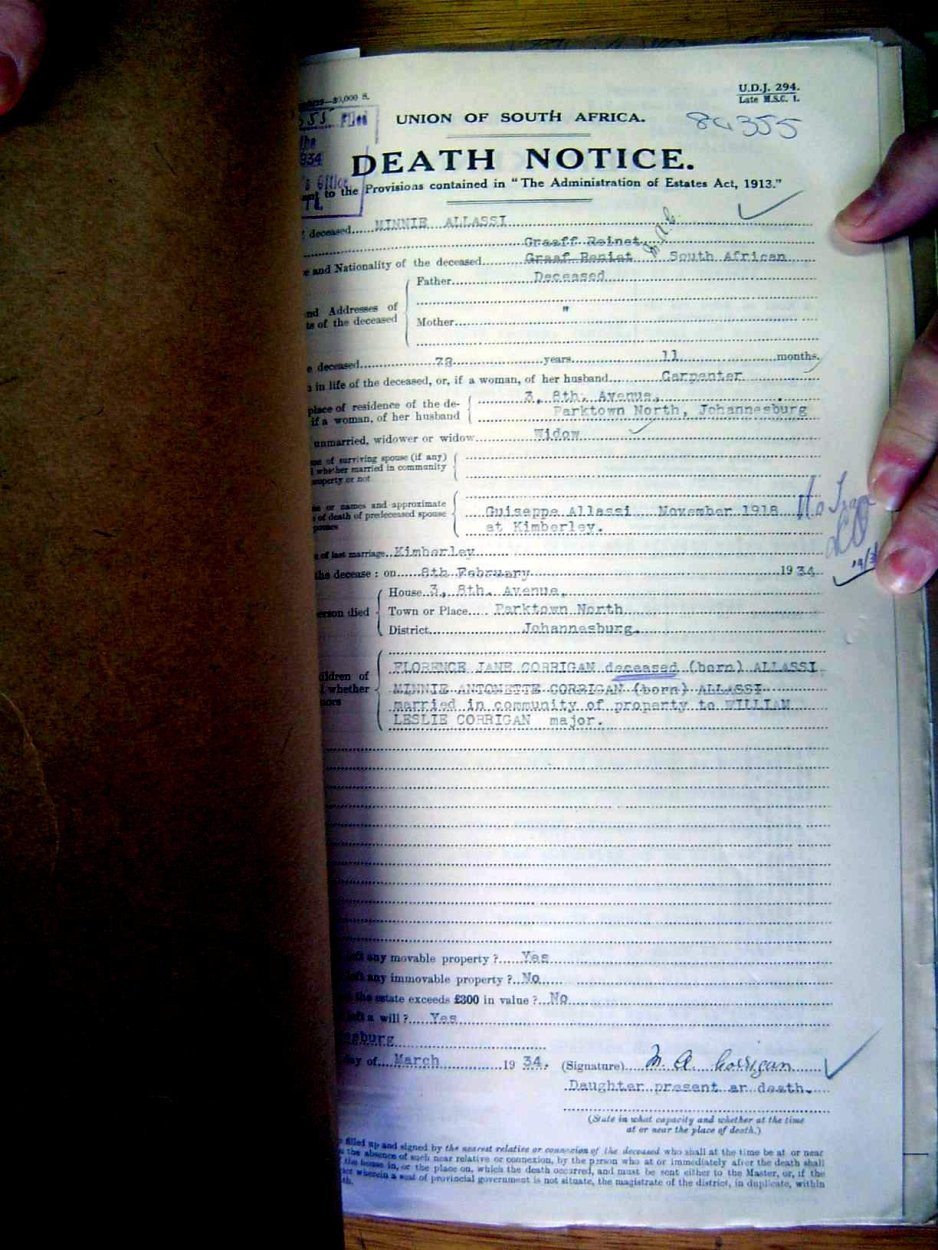 U.D.J. 294.
Late M.S.C. 1.
UNION OF SOUTH AFRICA.
84355
Filed
the
1934
's Office
DEATH NOTICE.
to the Provisions contained in "The Administration of Estates Act, 1913."
deceased MINNIE ALLASSI
Graaff Reinet
and Nationality of the deceased Graaf Reniet South African
Father Deceased
and Addresses of
of the deceased
Mother "
deceased 78 years 11 months,
in life of the deceased, or, if a woman, of her husband Carpenter
place of residence of the de- 3, 8th. Avenue,
if a woman, of her husband Parktown North, Johannesburg
unmarried, widower or widow Widow
of surviving spouse (if any)
whether married in community
property or not
or names and approximate
of death of predeceased spouse Guiseppe Allassi November 1918
at Kimberley.
of last marriage Kimberley
the decease : on 8th February 1934
House 3, 8th. Avenue,
person died Town or Place Parktown North
District Johannesburg.
children of FLORENCE JANE CORRIGAN deceased (born) ALLASSI
whether MINNIE ANTONETTE CORRIGAN (born) ALLASSI
married in community of property to WILLIAM
LESLIE CORRIGAN major.
left any movable property ? Yes
left any immovable property ? No
the estate exceeds £300 in value ? No
left a will ? Yes
esburg
day of March 1934. (Signature) M. A. Corrigan
Daughter present ar death.
(State in what capacity and whether at the time
at or near the place of death.)
filled up and signed by the nearest relative or connexion of the deceased who shall at the time be at or near
the absence of such near relative or connexion, by the person who at or immediately after the death shall
the house in, or the place on, which the death occurred, and must be sent either to the Master, or, if the
wherein a seat of provincial government is not situate, the magistrate of the district, in duplicate, within